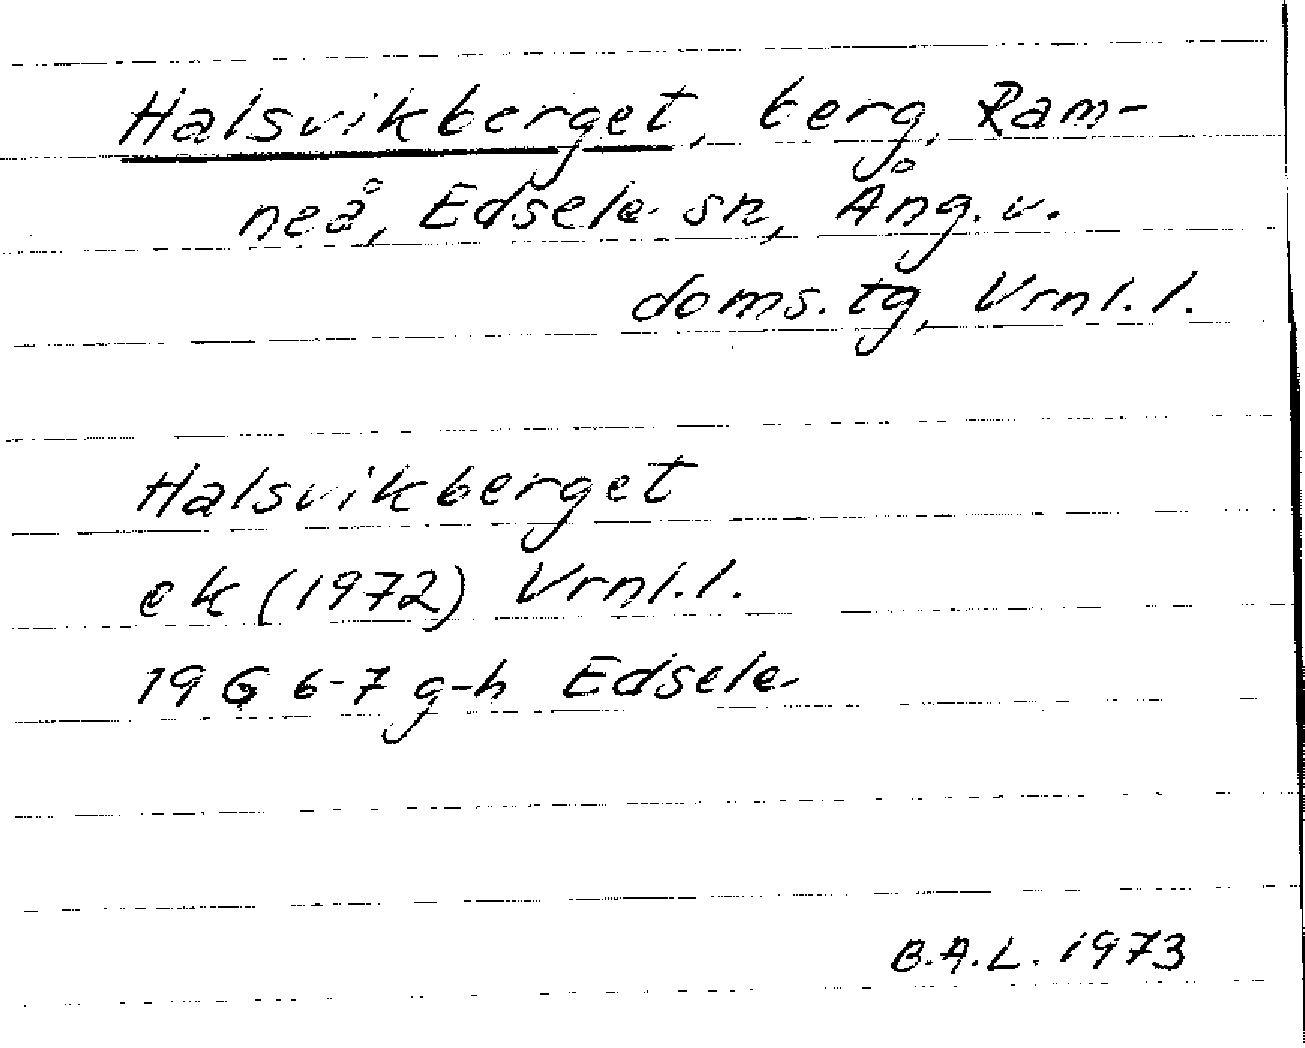 Halsvikberget, berg, Ram-
neå, Edsele sn, Ång. v.
doms. tg, Vrnl. l.
Halsvikberget
ek (1972) Vrnl. l.
19 G 6-7 g-h Edsele
B.A.L. 1973